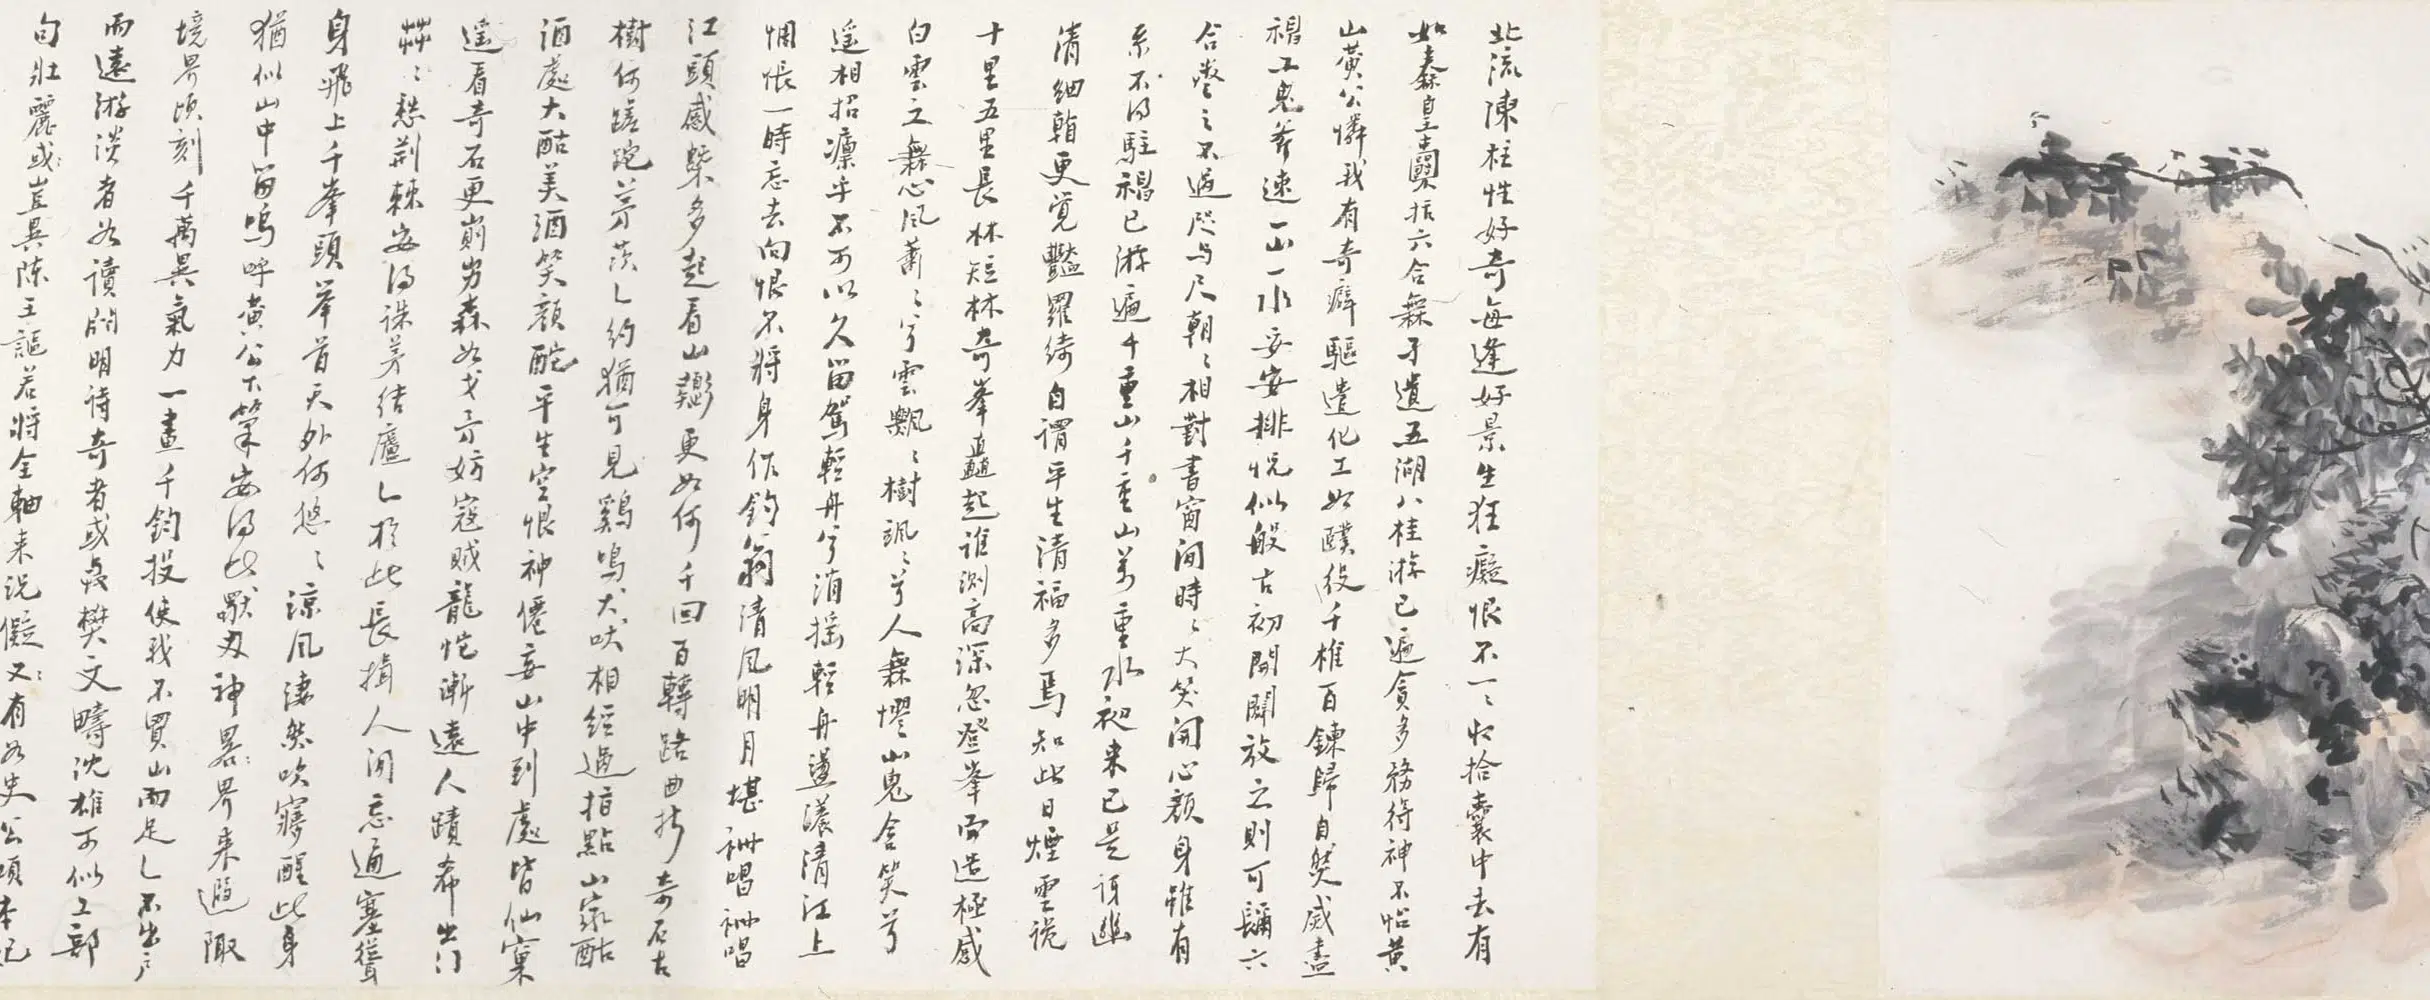 北流陳柱性好奇每逢好景生狂癡恨不一〻收拾囊中去有
如秦皇圖括六合無孑遺五湖八桂游已遍貪多務得神不怡黃
山黃公憐我有奇癖驅遣化工如醭役千椎百鍊歸自然威盡
工鬼斧速一山一水妥安排恍似般古初開闢放之則可彌六
合卷之不過咫與尺朝〻相對書窗間時〻大笑開心顏身雖有
系不得駐已游遍千重山千重山萬重水初來已是訝幽
清細翰更覺豔羅綺自謂平生清福多焉知此日煙雲說
十里五里長林短林奇峯矗起誰測高深忽登峯而造極感
白雲之無心風蕭〻兮雲飄〻樹颯〻兮人無懼山鬼含笑兮
遙相招凛乎不可以久留駕輕舟兮消搖輕舟盪漾清江上
惆悵一時忘去向恨不將身作釣翁清風明月堪酬唱酬唱
江頭感槩多起看山巅更如何千回百轉路曲折奇石古
樹何蹉跎茅茨乚約猶可見雞鳴犬吠相經過指點山家酤
酒處大酤美酒笑顏酡平生空恨神僊妄山中到處皆仙窠
遙看奇石更崩劣森如戈矛妨寇賊龍怳漸遠人蹟希出門
莽〻愁荊棘安得誅茅結廬乚於此長揖人間忘通塞聳
身飛上千峯頭举首天外何悠〻涼風淒然吹寤醒此身
猶似山中留嗚呼黃公下筆安得此 神畧畧界來遐陬
境界頃刻千萬異氣力一畫千鈞投使我不買山而足乚不出户
而遠游淡者如讀淵明詩奇者或袁樊文疇沈雄可似工部
句壯麗或豈異陳王謳若將全軸來況儗又有如史公項本紀